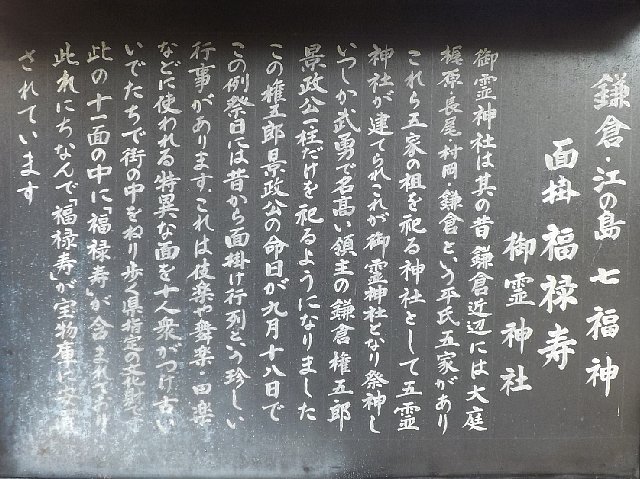 鎌倉・江の島 七福神
面掛 福禄寿
御霊神社
御霊神社は其の昔 鎌倉近辺には大庭
梶原・長尾・村岡・鎌倉という平氏五家があり
これら五家の祖を祀る神社として五霊
神社が建てられこれが御霊神社となり祭神も
いつしか武勇で名高い領主の鎌倉権五郎
景政公一柱だけを祀るようになりました
この権五郎景政公の命日が九月十八日で
この例祭日には昔から面掛け行列という珍しい
行事があります.これは伎楽や舞楽・田楽
などに使われる特異な面を十人衆がつけ古い
いでたちで街の中をねり歩く県指定の文化財です
此の十一面の中に「福禄寿」が含まれており
此れにちなんで「福禄寿」が宝物庫に
されています